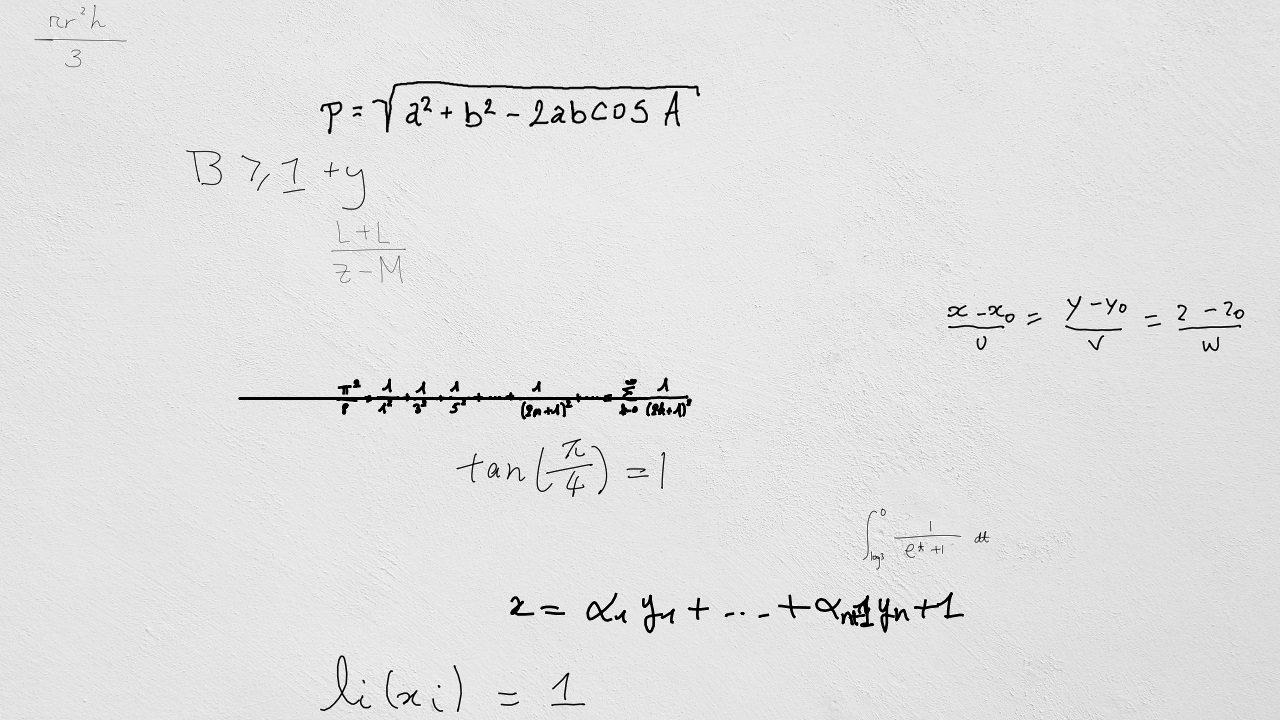 πr²h / 3
p = √(a² + b² - 2ab cos A)
B ⩾ 1 + y
(L + L) / (z - M)
(x - x₀) / U = (y - y₀) / V = (z - z₀) / W
π²/8 = 1/1² + 1/3² + 1/5² + ... + 1/(2n+1)² + ... = ∑_{k=0}^{∞} 1/(2k+1)²
tan(π/4) = 1
∫_{log3}^{0} 1/(eᵗ + 1) dt
z = α₁ y₁ + ... + αₙ₊₁ yₙ + 1
li(xi) = 1